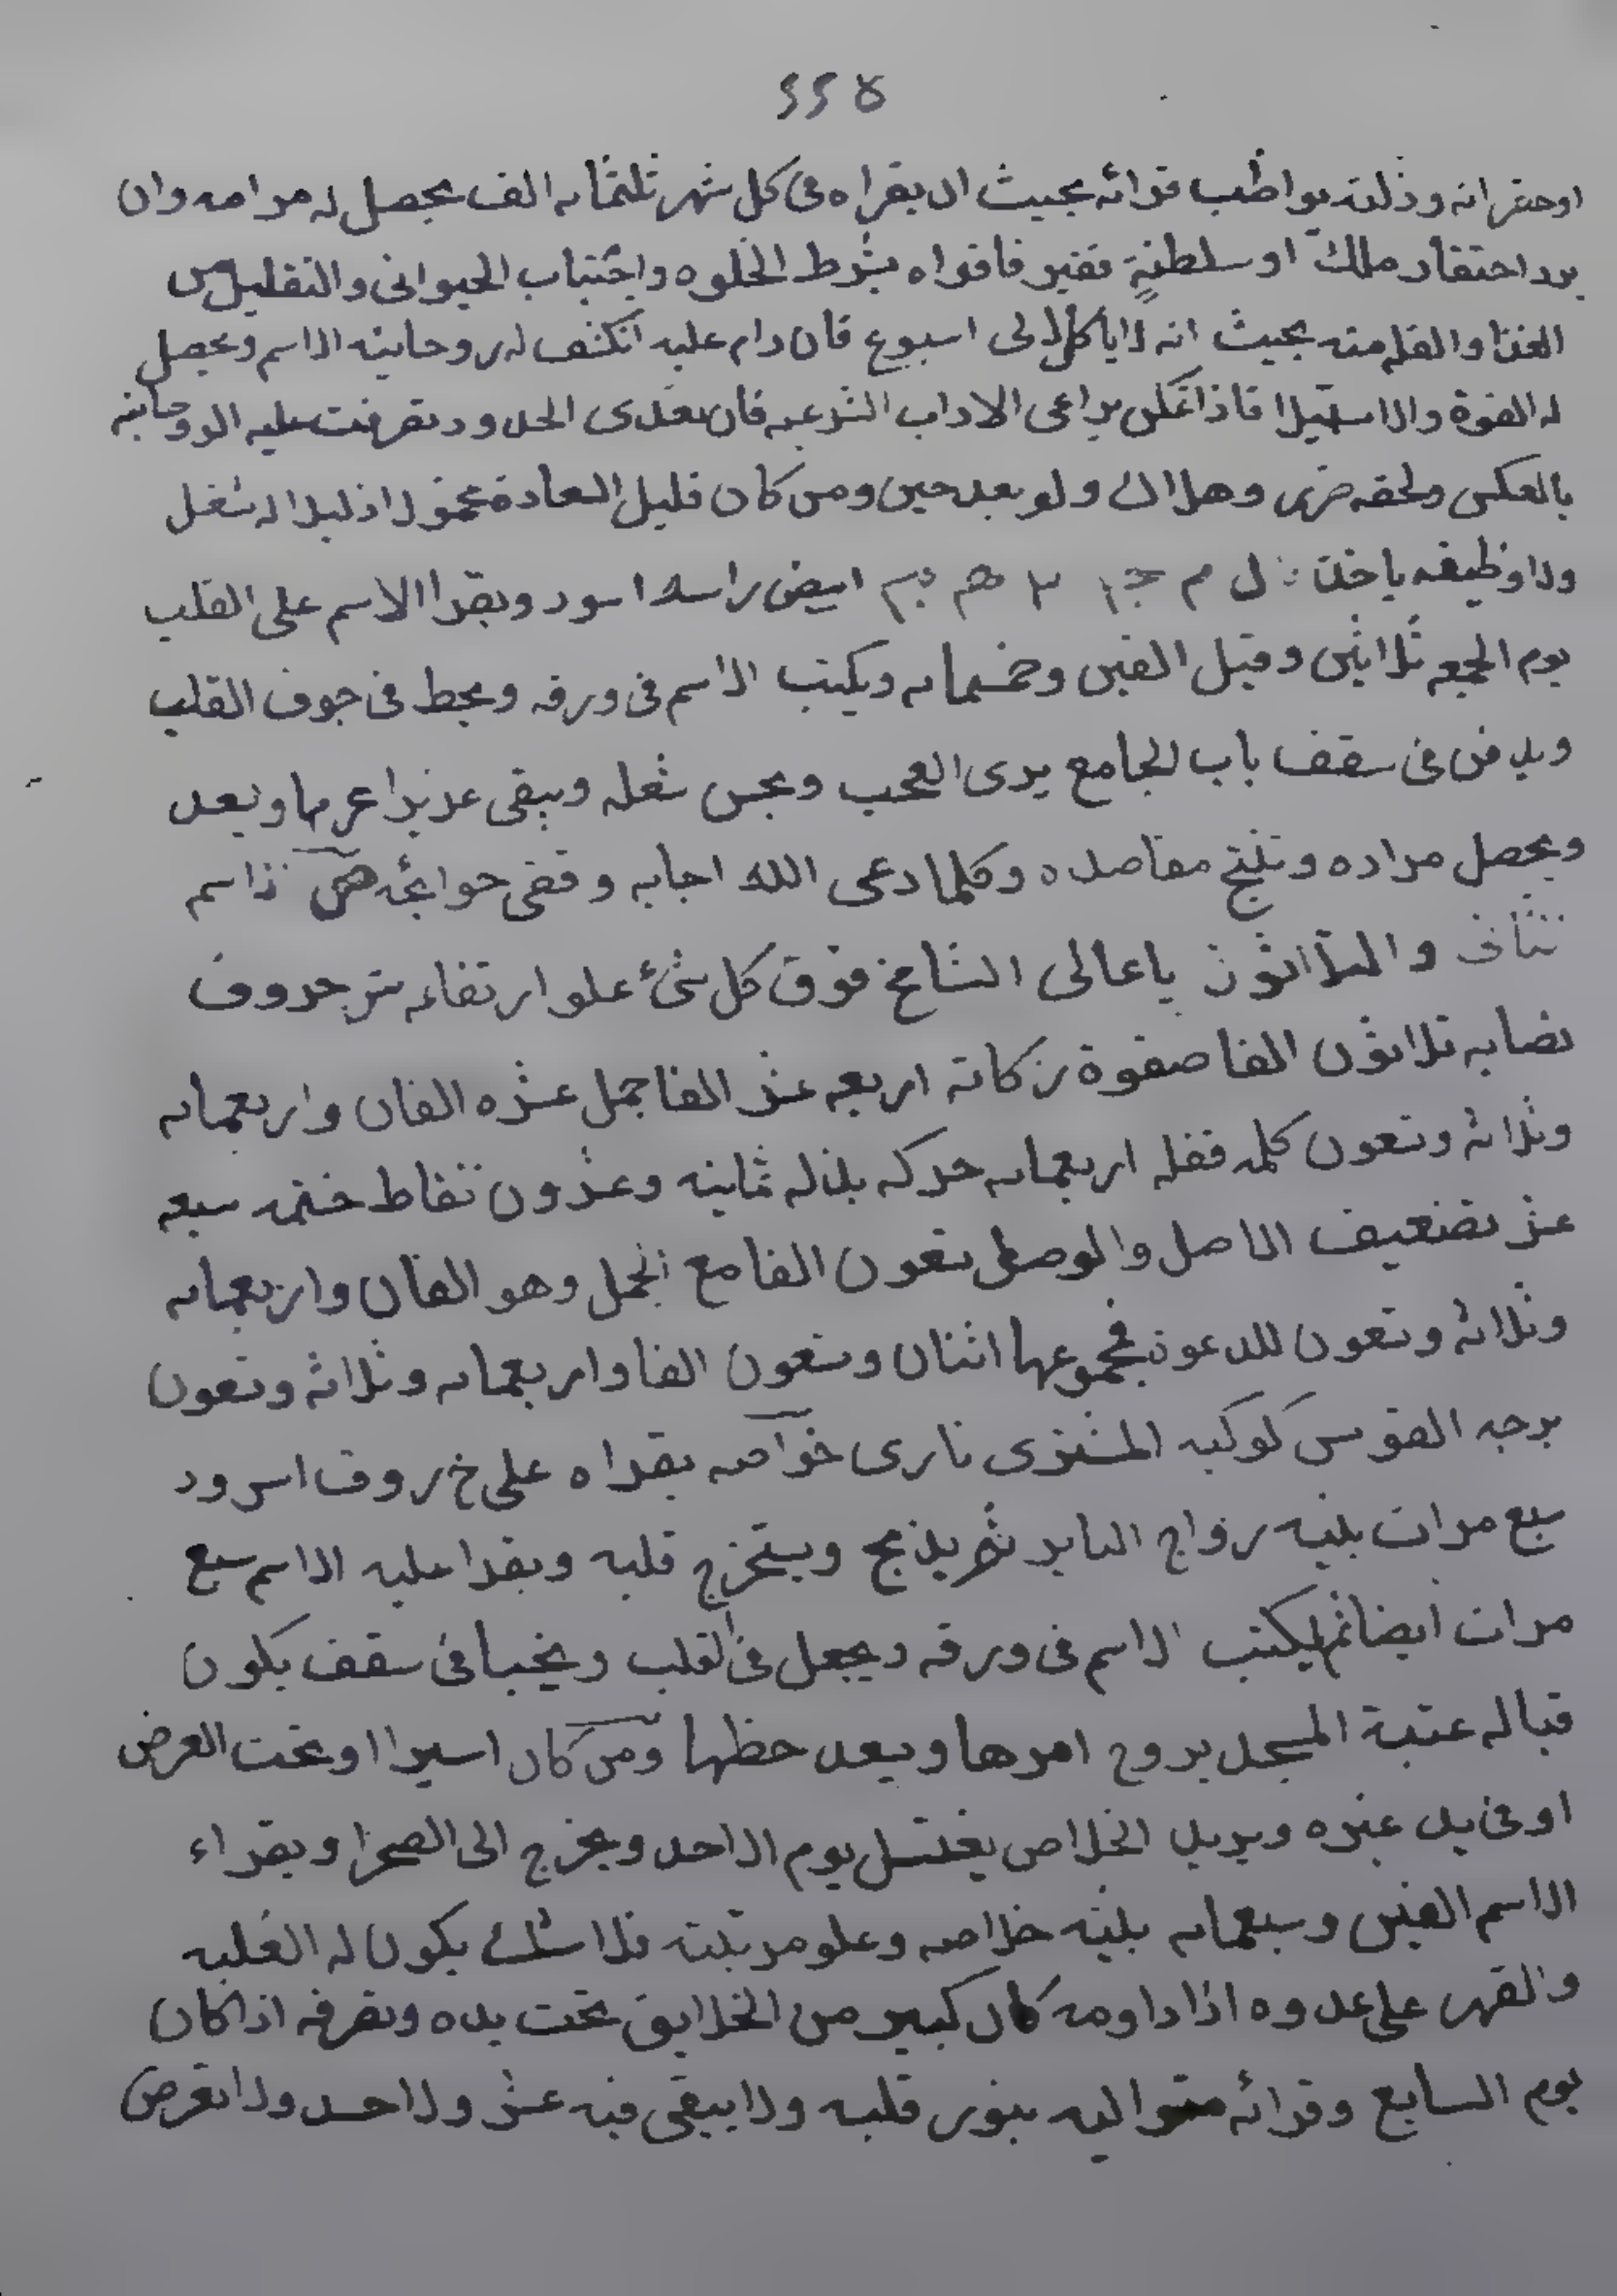 ٢٢٥
او حقرانه وذلته يواظب قرائه بحيث ان يقراه فى كل شهر ثلثمائه الف يحصل له مرامه وان
يرد احتقار ملك او سلطنة فقير فاقراه بشرط الخلوه واجتناب الحيوانى والتقليل من
الغذا والقله منه بحيث انه لاياكل الى اسبوع فان دام عليه انكشف له روحانيه الاسم ويحصل
له القوة والاستيلا فاذا تمكن يراعى الاداب الشرعيه فان تعدى الحدود تصرفت عليه الروحانيه
بالعكس ولحقه ضرر وهلاك ولو بعد حين ومن كان قليل السعادة مخمولا ذليلا له شغل
ولا وظيفه ياخذ ل م ابيض راسه اسود ويقرا الاسم على القلب
يوم الجمعه ثلاثين وقيل الفين وخمسمايه ويكتب الاسم فى ورقه ويحط فى جوف القلب
ويدفن فى سقف باب الجامع يرى العجب ويحسن شغله ويبقى عزيزا ويسعد
ويحصل مراده وتنتج مقاصده وكلما دعى الله اجابه وقضى حوائجه
والثلاثون ياعالى الشامخ فوق كل شئ علو ارتفاعه حروف
نصابه ثلاثون الفا صفوة زكاته اربعه عشر الفا جمل عشره الفان واربعمايه
وثلاثه وتسعون كلمه قفله اربعمايه حركه بذله ثمانيه وعشرون نقاط ختمه سبعه
عشر تضعيف الاصل والوصطى تسعون الفا مع الجمل وهو الفان واربعمايه
وثلاثه وتسعون للدعوة فجموعها اثنان وتسعون الفا واربعمايه وثلاثه وتسعون
برجه القوس كوكبه المشترى نارى خواصه يقراه على خ روف اسود
سبع مرات بنيه رواج الباير ثم يذبح ويستخرج قلبه ويقرا عليه الاسم سبع
مرات ايضا ثم يكتب الاسم فى ورقه ويجعل فى القلب ويخبا فى سقف يكون
قباله عتبة المسجد يروج امرها ويسعد حظها ومن كان اسيرا او تحت العرض
او فى يد غيره ويريد الخلاص يغتسل يوم الاحد ويخرج الى الصحرا ويقراء
الاسم الفين وسبعمايه بنيه خلاصه وعلو مرتبته فلا شك يكون له الغلبه
والقهر على عدوه اذا داومه كان كبير من الخلايق تحت يده وتصرفه اذا كان
يوم السابع وقرائه متواليه ينور قلبه ولايبقى فيه غش ولا حسد ولا تعرض